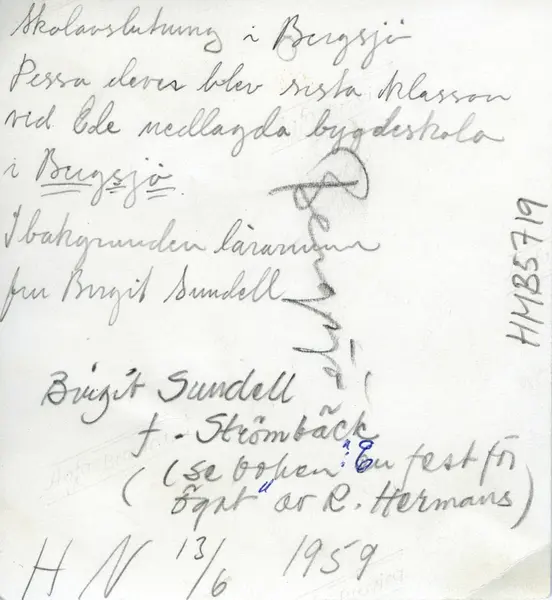 Skolavslutning i Bergsjö
Dessa elever blev sista klassen
vid Ede nedlagda bygdeskola
i Bergsjö.
I bakgrunden lärarinnan
fru Birgit Sundell
Bergsjö
HMB5719
Birgit Sundell
f. Strömbäck
(se boken: "En fest för
ögat" av R. Hermans)
HN 13/6 1959